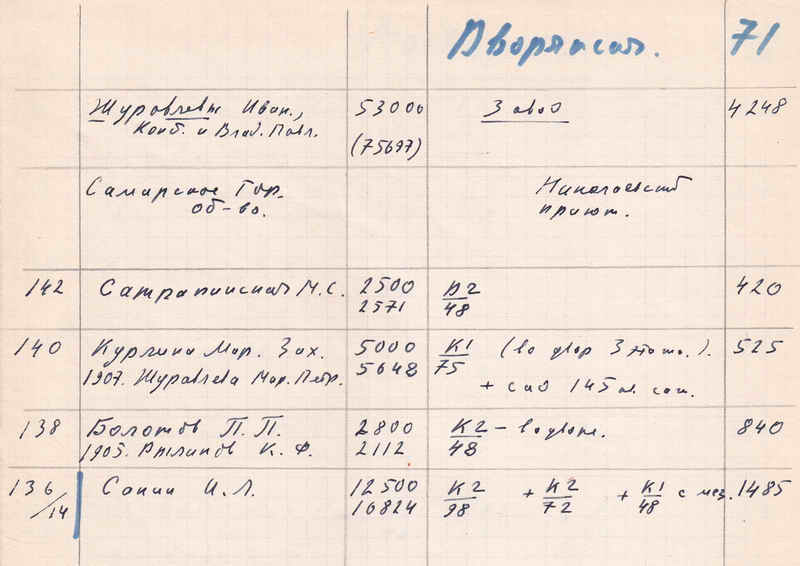 Дворянск. 71
Журавлевы Иван., 53000 Завод 4248
Конст. и Влад. Павл. (75697)
Самарское Гор. Николаевский
об-во. приют.
142 Сатрапинская М.С. 2500 Д2 420
2571 48
140 Кургина Мар. Зах. 5000 К1 (во двор 3 этаж.). 525
1907. Журавлева Мар. Петр. 5648 75 + сад 145 кв. саж.
138 Болотов П. П. 2800 К2 – во дворе. 840
1905. К. Ф. 2112 48
136 Санин И. Л. 12500 К2 + К2 + К1 с мез. 1485
/14 16824 98 72 48